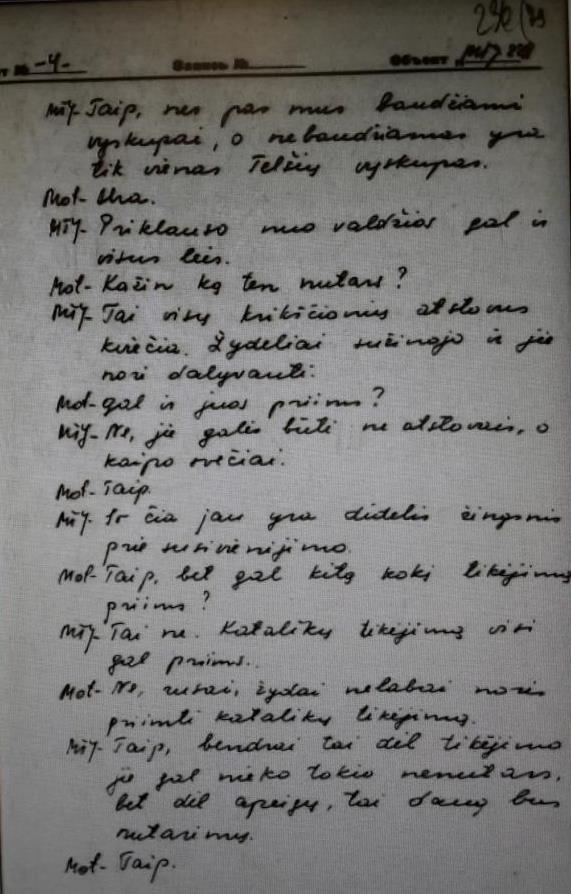 292/79
т № -4- Запись № Объект
МУ- Taip, nes pas mus baudžiami
vyskupai, o nebaudžiamas yra
tik vienas Telšių vyskupas.
Mot- Uha.
МУ- Priklauso nuo valdžios gal ir
visus leis.
Mot- Kažin ką ten nutars?
МУ- Tai visų krikščionių atstovus
kviečia. Žydeliai sužinojo ir jie
nori dalyvauti.
Mot- gal ir juos priims?
МУ- Ne, jie galės būti ne atstovais, o
kaipo svečiai.
Mot- Taip.
МУ- Ir čia jau yra didelis žingsnis
prie susivienijimo.
Mot- Taip, bet gal kitą kokį tikėjimą
priims?
МУ- Tai ne. Katalikų tikėjimą visi
gal priims.
Mot- Ne, rusai, žydai nelabai norės
priimti katalikų tikėjimą.
МУ- Taip, bendrai tai dėl tikėjimo
jie gal nieko tokio nenutars,
bet dėl apeigų, tai daug bus
nutarimų.
Mot- Taip.